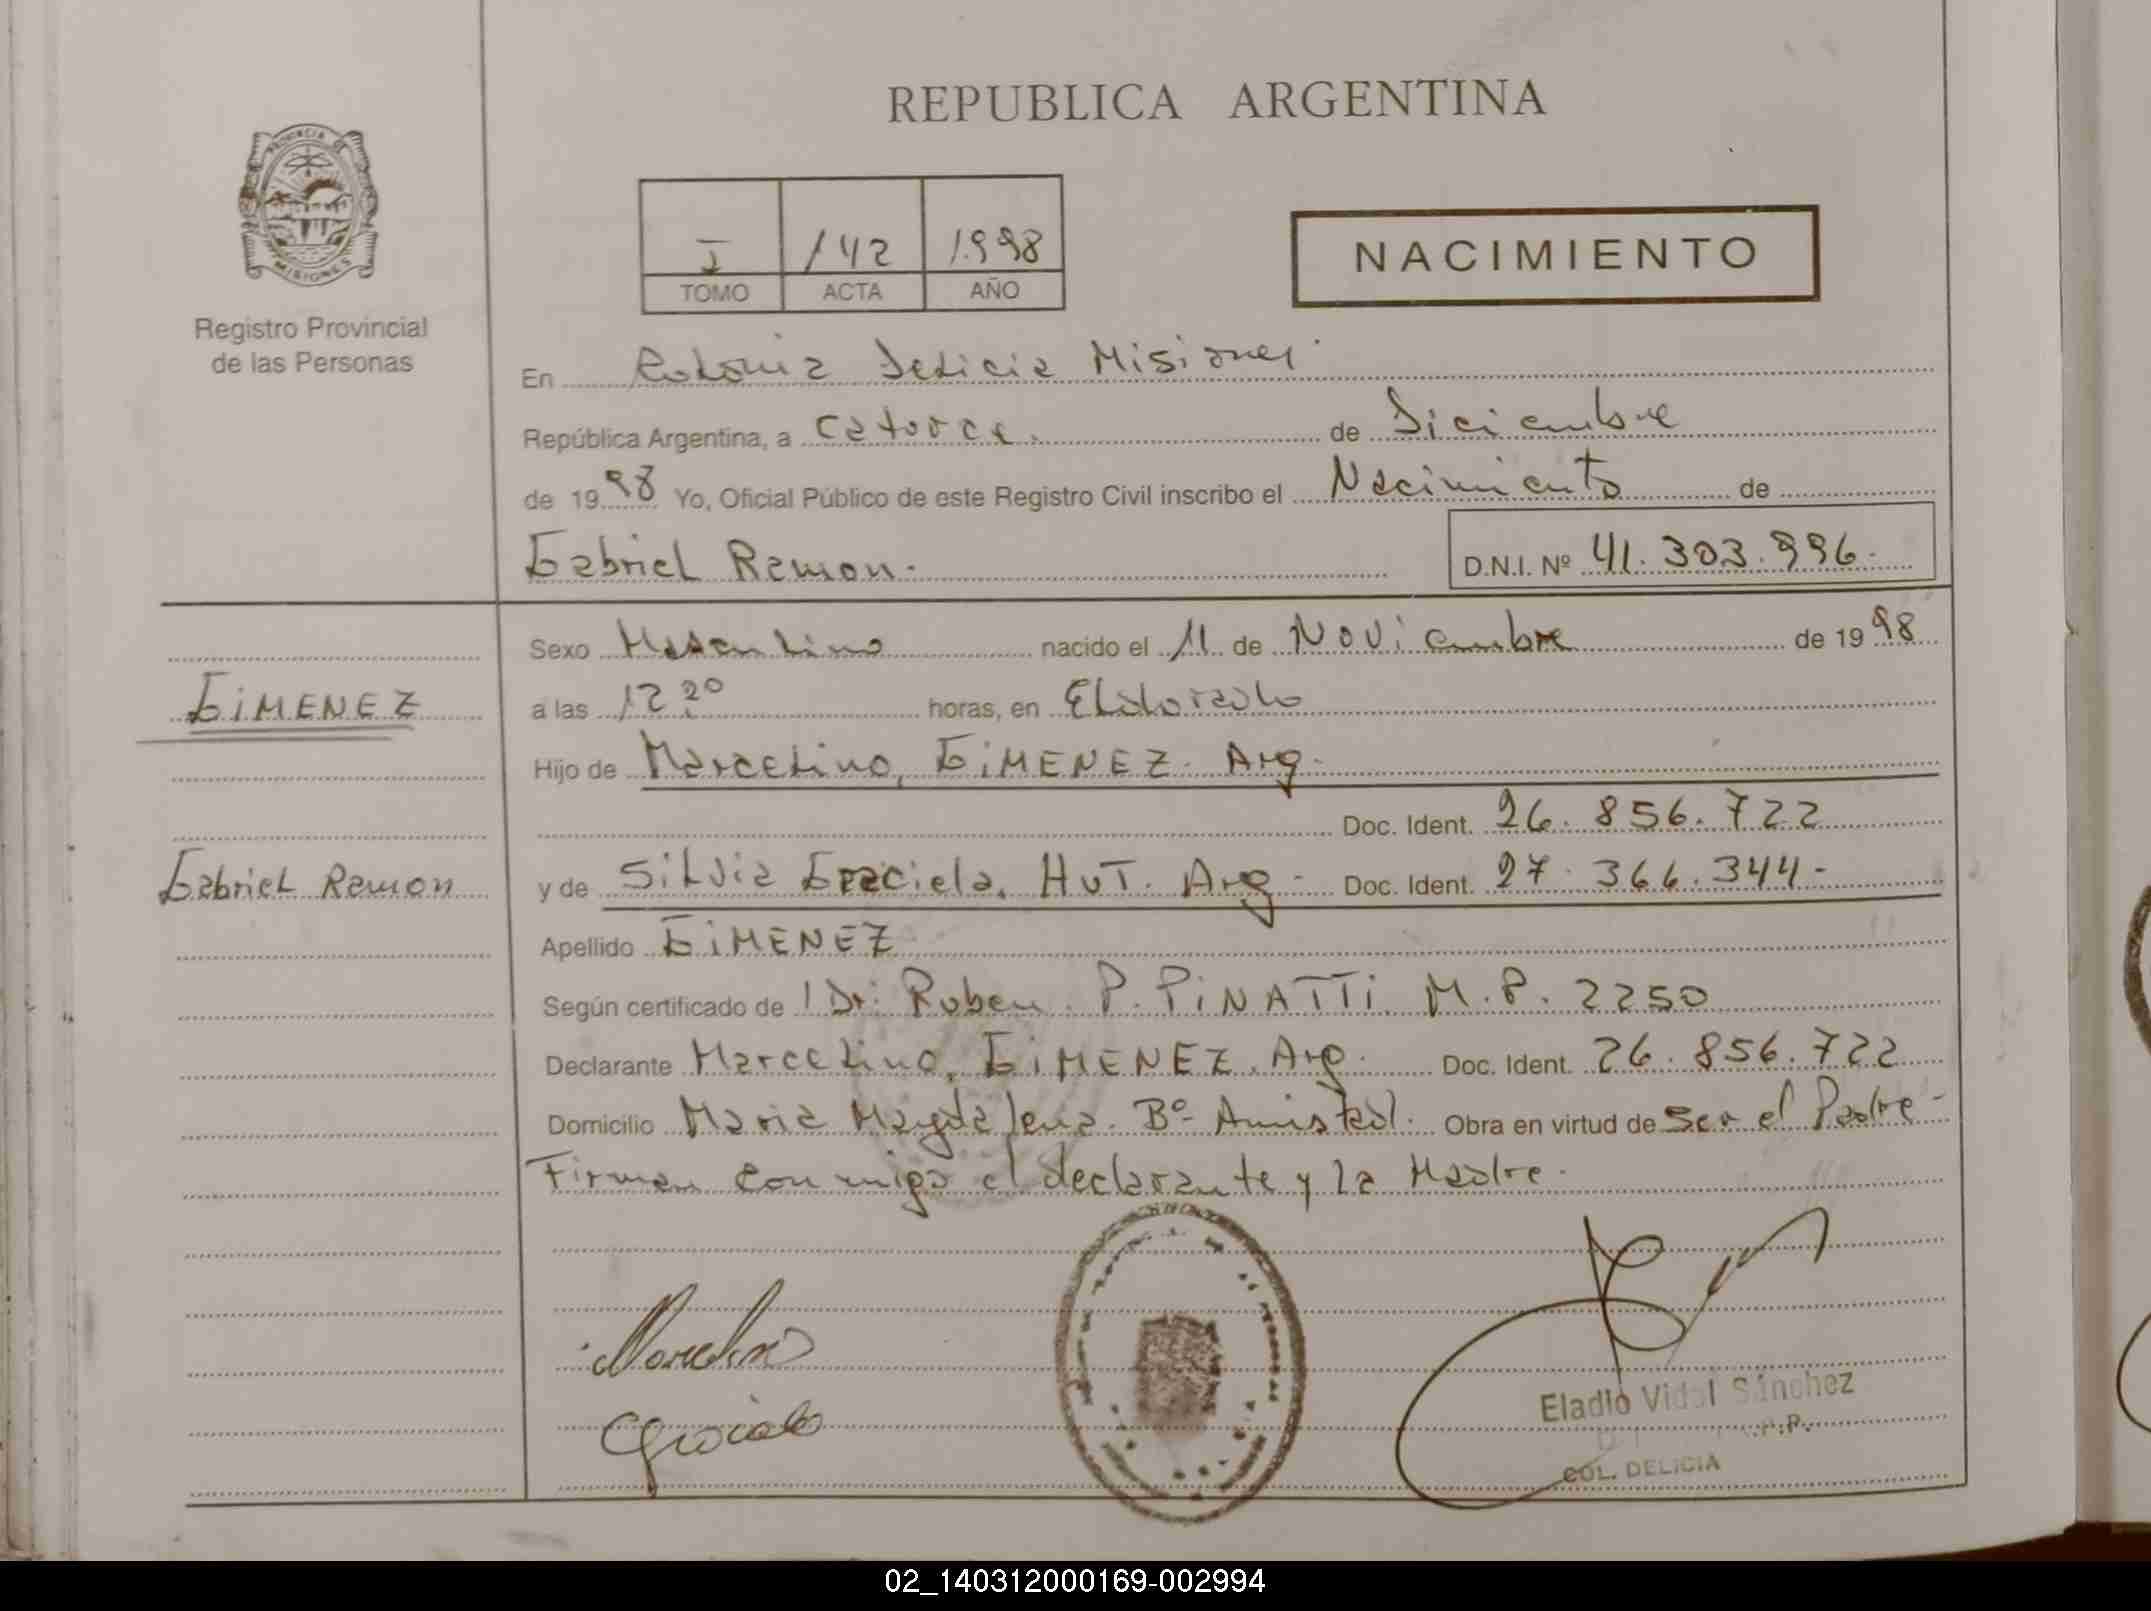 REPUBLICA ARGENTINA
PROVINCIA DE
MISIONES
Registro Provincial
de las Personas
I 142 1.998
TOMO ACTA AÑO
NACIMIENTO
En Colonia Delicia Misiones.
República Argentina, a catorce. de Diciembre
de 1998 Yo, Oficial Público de este Registro Civil inscribo el Nacimiento de
Gabriel Ramon. D.N.I. Nº 41.303.996.
Sexo Masculino nacido el 11 de Noviembre de 1998
GIMENEZ
a las 12 20 horas, en Eldorado
Hijo de Marcelino, GIMENEZ. Arg.
Doc. Ident. 26.856.722
Gabriel Ramon
y de Silvia Graciela, HUT. Arg- Doc. Ident. 27.366.344-
Apellido GIMENEZ
Según certificado de Dr. Ruben P. PINATTI M.P. 2250
Declarante Marcelino, GIMENEZ. Arg. Doc. Ident. 26.856.722
Domicilio Maria Magdalena. Bº- Amistad. Obra en virtud de ser el Padre-
Firman conmigo el declarante y la Madre.
Eladio Vidal Sánchez
COL. DELICIA
02_140312000169-002994